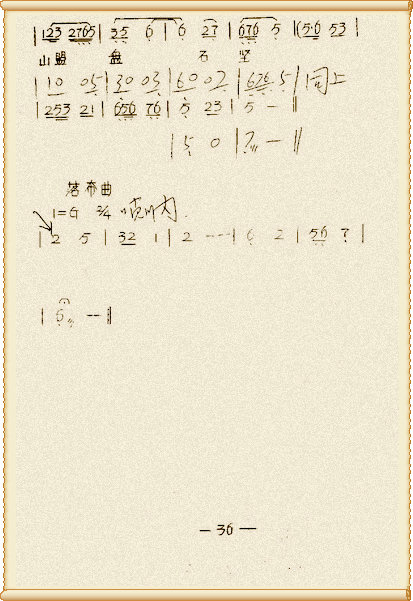 |123 2765|35 6|6 27|676 5|(5·6 53|
山盟 盘 石 坚
|10 05|30 03|60 02|676 5|同上
|253 21|656 76|5 23|5 - ‖
|5 0|
落布曲
1=G 2/4
|2 5|32 1|2 --|6 2|56 7|
|6 --‖
— 36 —